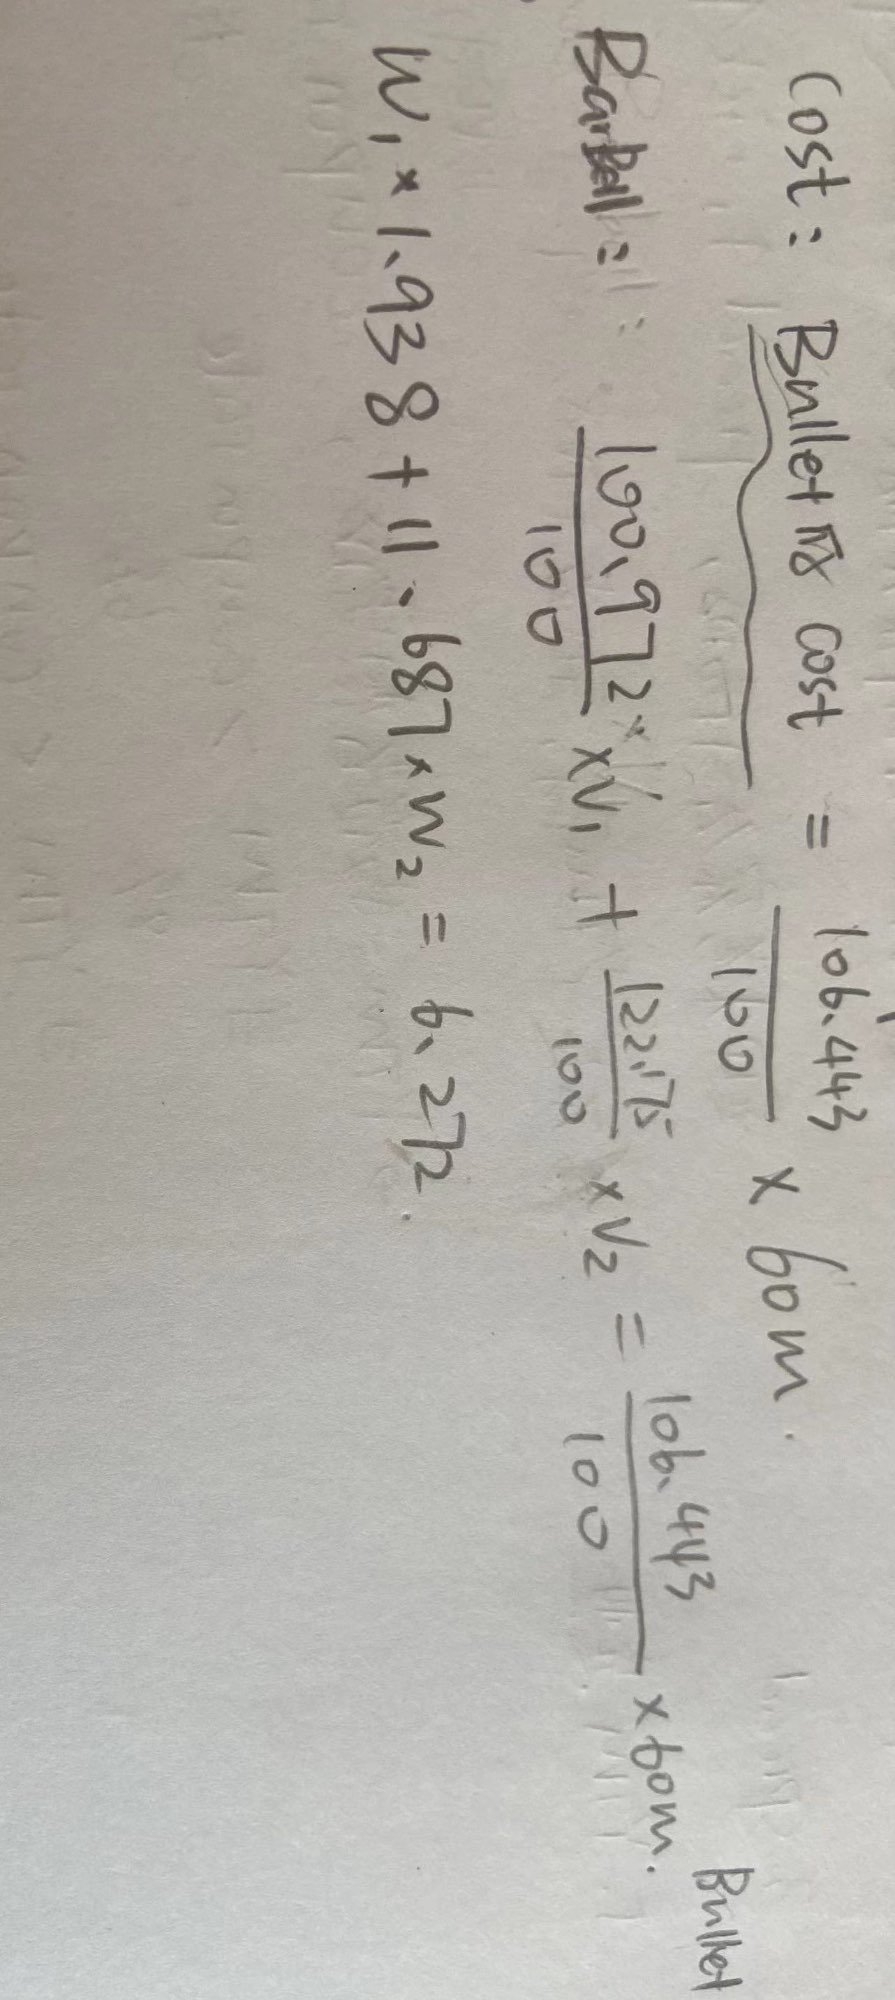 Cost: Bullet的 cost = 106.443/100 × 60m.
Bullet
Barbell: 100.972/100 × V₁ + 122.175/100 × V₂ = 106.443/100 × 60m.
W₁ × 1.938 + 11.687 × W₂ = 6.272.